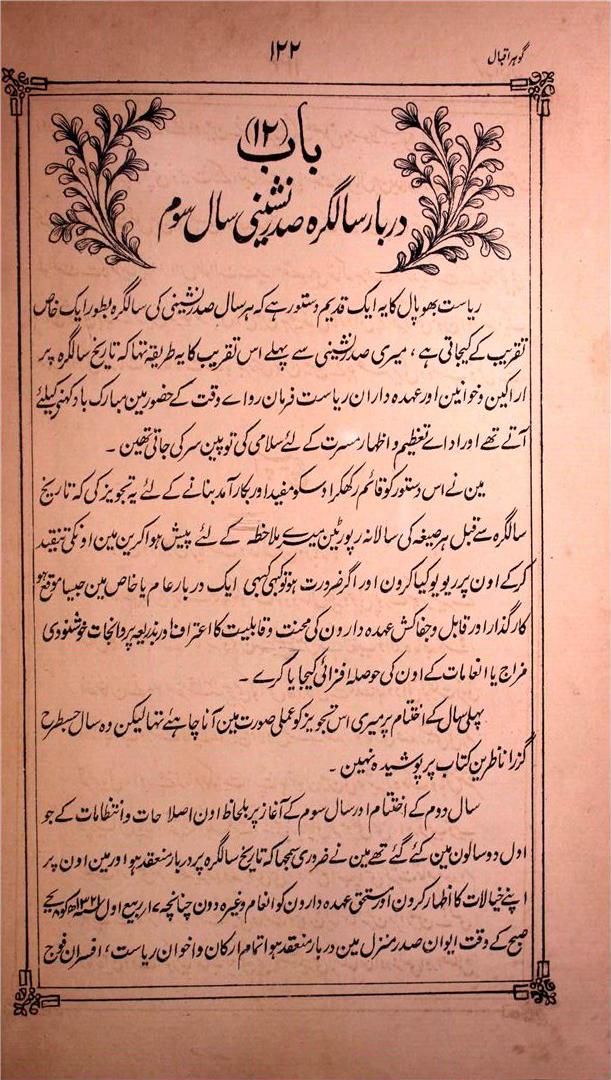 گوہر اقبال
۱۲۲
باب (۱۲)
دربار سالگرہ صدر نشینی سال سوم
ریاست بھوپال کا یہ ایک قدیم دستور ہے کہ ہر سال صدر نشینی کی سالگرہ بطور ایک خاص
تقریب کے کیجاتی ہے ، میری صدر نشینی سے پہلے اس تقریب کا یہ طریقہ تہا کہ تاریخ سالگرہ پر
اراکین و خوانین اور عہدہ داران ریاست فرمان رواے وقت کے حضور مین مبارک باد کہنی کیلئے
آتے تھے اور اداے تعظیم و اظہار مسرت کے لئے سلامی کی توپین سر کی جاتی تھین ۔
مین نے اس دستور کو قائم رکھکر اوسکو مفید اور بکار آمد بنانے کے لئے یہ تجویز کی کہ تاریخ
سالگرہ سے قبل ہر صیغہ کی سالانہ رپورٹین میرے ملاحظہ کے لئے پیش ہوا کرین مین اونکی تنقید
کر کے اون پر ریویو کیا کرون اور اگر ضرورت ہو تو کبھی کبھی ایک دربار عام یا خاص مین جیسا موقع ہو
کارگذار اور قابل و جفاکش عہدہ دارون کی محنت و قابلیت کا اعتراف اور بذریعہ پروانجات خوشنودی
مزاج یا انعامات کے اون کی حوصلہ افزائی کیجایا کرے ۔
پہلی سال کے اختتام پر میری اس تجویز کو عملی صورت مین آنا چاہئے تہا لیکن وہ سال جسطرح
گزرا ناظرین کتاب پر پوشیدہ نہین ۔
سال دوم کے اختتام اور سال سوم کے آغاز پر بلحاظ اون اصلاحات و انتظامات کے جو
اول دو سالون مین کئے گئے تھے مین نے ضروری سمجھا کہ تاریخ سالگرہ پر دربار منعقد ہو اور مین اون پر
اپنے خیالات کا اظہار کرون اور مستحق عہدہ دارون کو انعام وغیرہ دون چنانچہ ۱۷ ربیع اول ۱۳۲۱ھ کو ۸ بجے
صبح کے وقت ایوان صدر منزل مین دربار منعقد ہوا تمام ارکان و اخوان ریاست ، افسران فوج